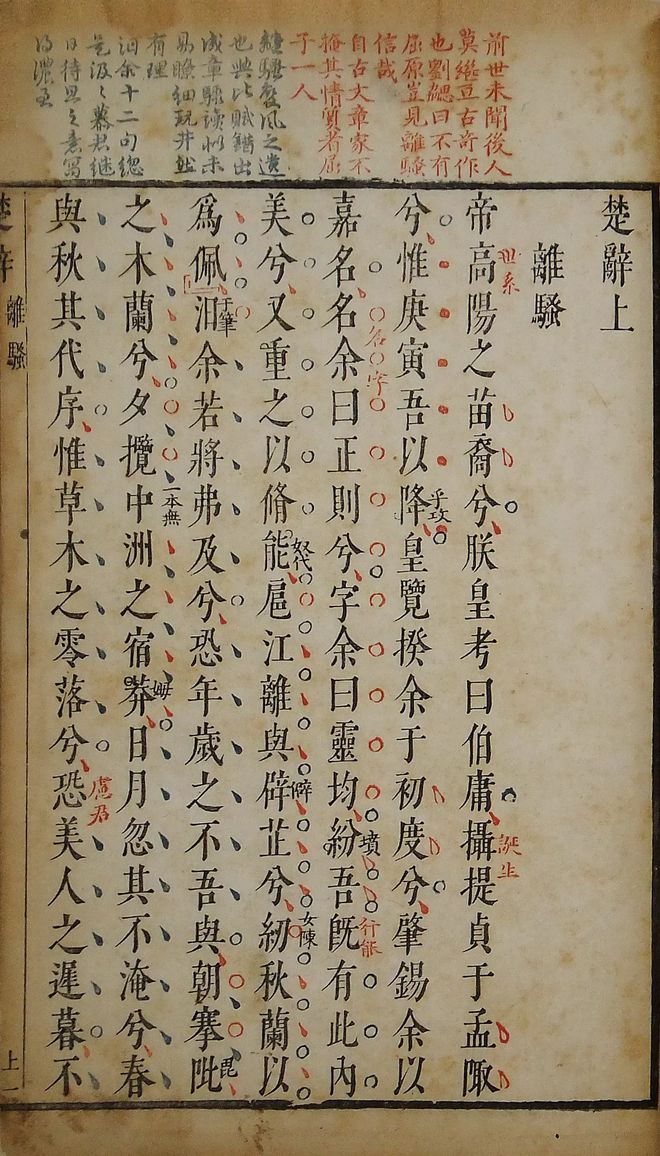 前世未聞後人
莫繼亘古奇作
也劉勰曰不有
屈原豈見離騷
信哉
自古文章家不
掩其情質者屈
子一人
離騷變風之遺
也典比賦錯出
成章驟讀似未
易瞭細玩井然
有理
汩余十二句總
是汲〻慕君继
日待旦之意寫
得濃至
楚辭上
離騷
世系
誕生
帝高陽之苗裔兮朕皇考曰伯庸攝提貞于孟陬
乎攻
兮惟庚寅吾以降皇覽揆余于初度兮肇錫余以
名字
墳
行能
嘉名名余曰正則兮字余曰靈均紛吾旣有此內
奴代
僻
女陳
美兮又重之以脩能扈江離與辟芷兮紉秋蘭以
于筆
毘
爲佩汩余若將弗及兮恐年歲之不吾與朝搴阰
一本無
姆
之木蘭兮夕攬中洲之宿莽日月忽其不淹兮春
慮君
與秋其代序惟草木之零落兮恐美人之遲暮不
楚辭 離騷 上一